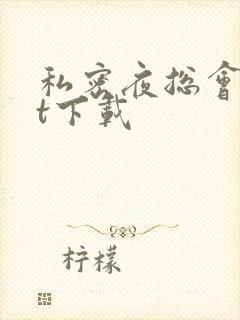 私密夜总會
t下载
柠檬